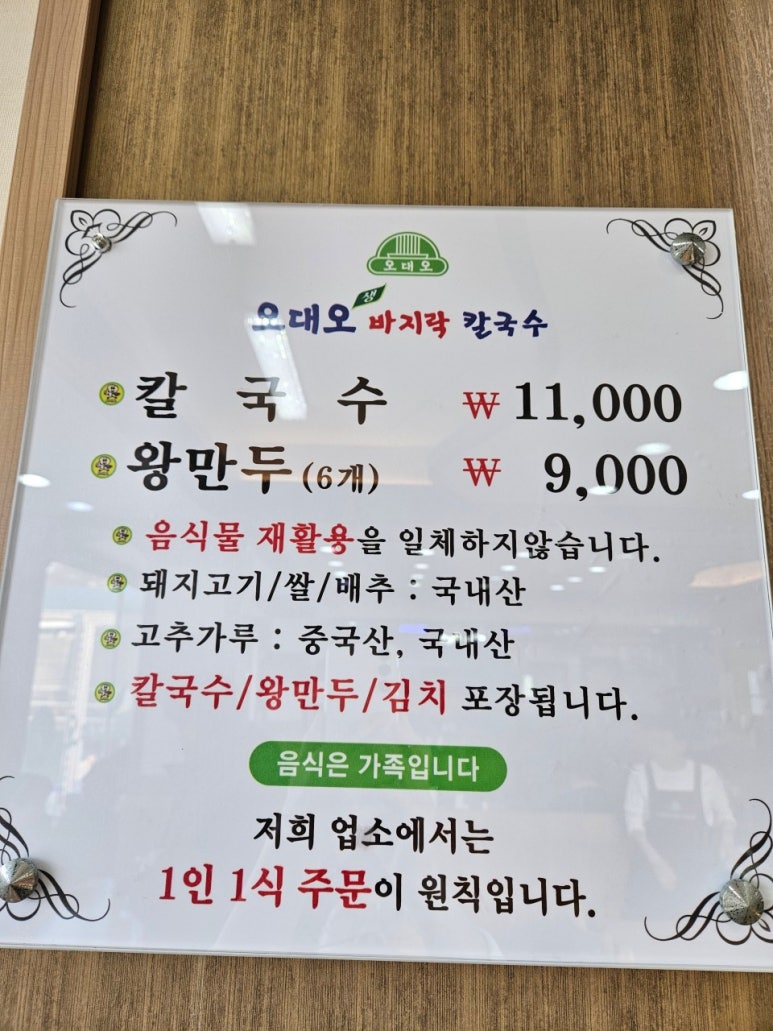 오대오
오대오 생 바지락 칼국수
칼 국 수 ₩ 11,000
왕만두(6개) ₩ 9,000
음식물 재활용을 일체하지않습니다.
돼지고기/쌀/배추 : 국내산
고추가루 : 중국산, 국내산
칼국수/왕만두/김치 포장됩니다.
음식은 가족입니다
저희 업소에서는
1인 1식 주문이 원칙입니다.